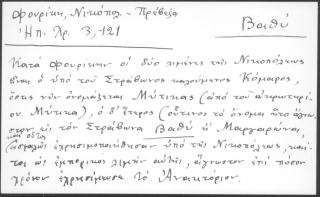 Φουρίκη, Νικόπολ. - Πρέβεζα
Ἠπ. Χρ. 3, 121
Βαθύ
Κατὰ Φουρίκην οἱ δύο λιμένες τῆς Νικοπόλεως
εἶναι ὁ ὑπὸ τοῦ Στράβωνος καλούμενος Κόμαρος,
ὅστις νῦν ὀνομάζεται Μύτικας (ἀπὸ τοῦ ἀκρωτηρί-
ου Μύτικα), ὁ δ' ἕτερος (οὗτινος τὸ ὄνομα
εἰς τὸν Στράβωνα Βαθὺ ἢ Μαργαρώνα,
καὶ οὗτος
ἀσφαλῶς ἐχρησιμοποιήθησαν ὑπὸ τῆς Νικοπόλεως, καί-
τοι ὡς ἐμπορικὸς λιμὴν αὐτῆς, ἄγνωστον ἐπὶ πόσον
χρόνον ἐχρησίμευσε τὸ Ἀνακτόριον.